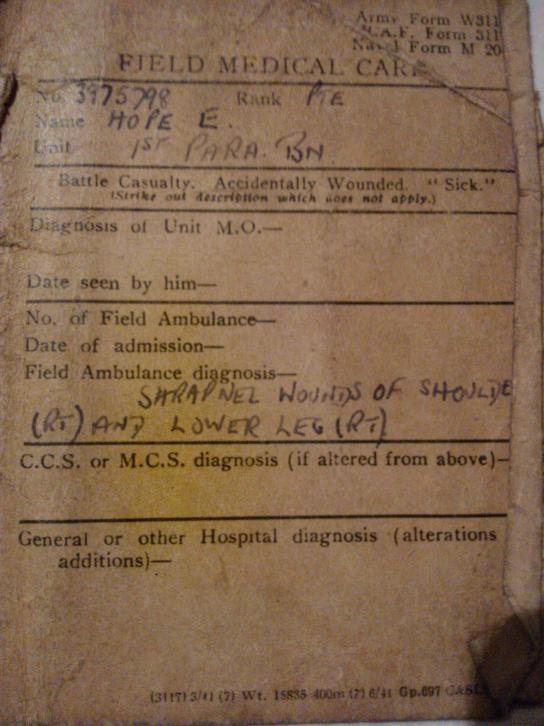 Army Form W311
Form 311
Form M 20
FIELD MEDICAL CARD
No. 3975798 Rank PTE
Name HOPE E.
Unit 1ST PARA. BN.
Battle Casualty. Accidentally Wounded. "Sick."
(Strike out description which does not apply.)
Diagnosis of Unit M.O.—
Date seen by him—
No. of Field Ambulance—
Date of admission—
Field Ambulance diagnosis—
SHRAPNEL WOUNDS OF SHOULDE
(RT) AND LOWER LEG (RT)
C.C.S. or M.C.S. diagnosis (if altered from above)—
General or other Hospital diagnosis (alterations
additions)—
(3117) 3/41 (7) Wt. 15835 400m (7) 6/41 Gp.697